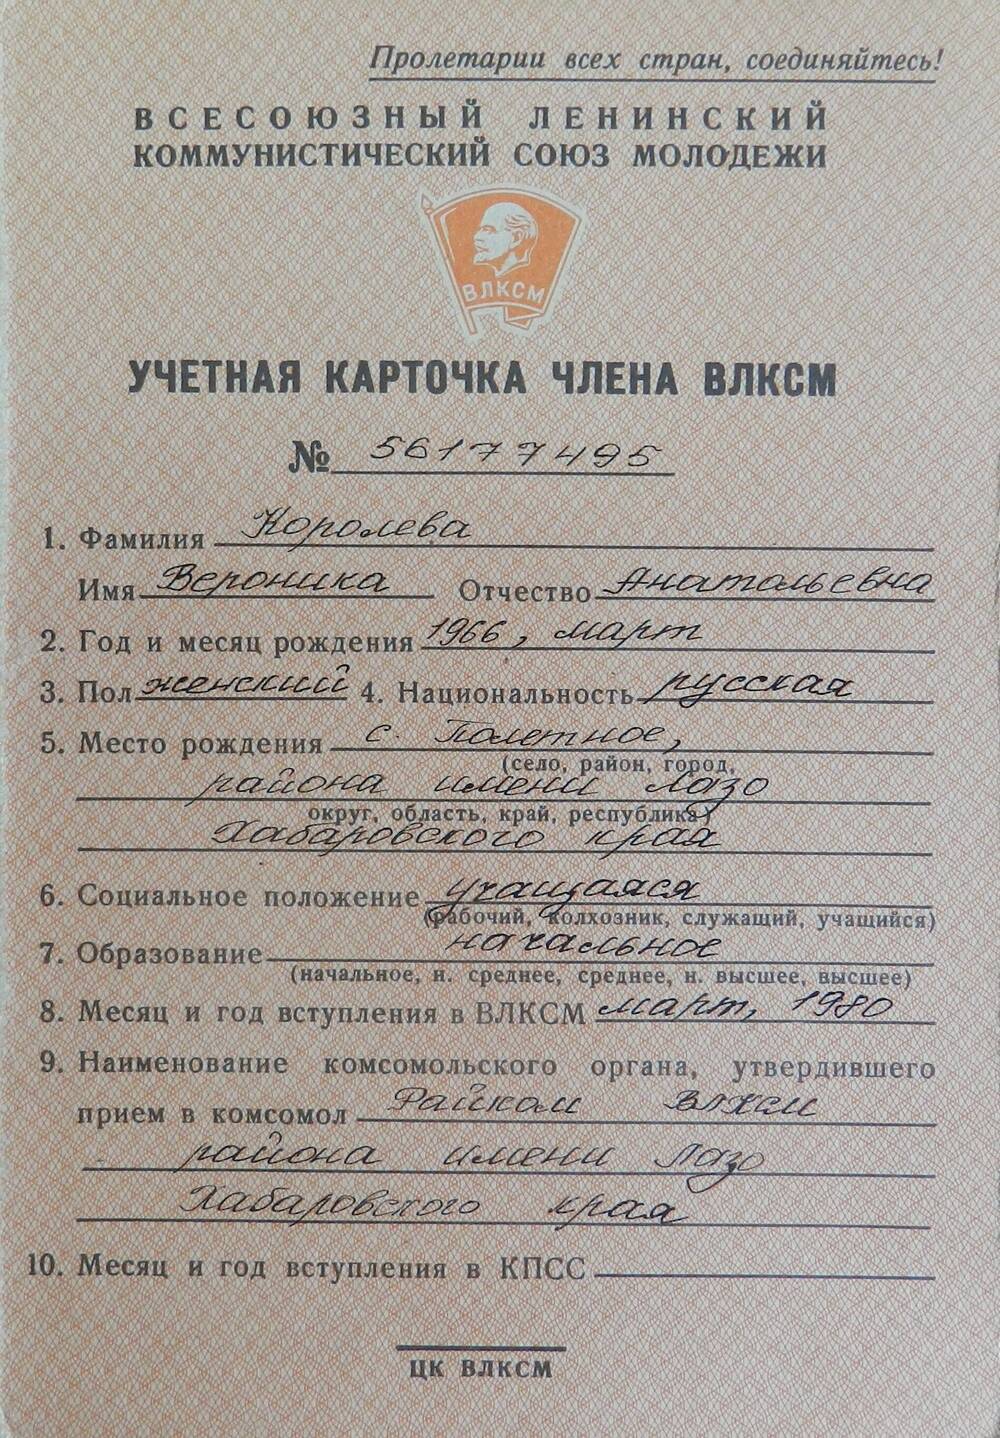 Пролетарии всех стран, соединяйтесь!
ВСЕСОЮЗНЫЙ ЛЕНИНСКИЙ
КОММУНИСТИЧЕСКИЙ СОЮЗ МОЛОДЕЖИ
ВЛКСМ
УЧЕТНАЯ КАРТОЧКА ЧЛЕНА ВЛКСМ
№ 56177495
1. Фамилия Королева
Имя Вероника Отчество Анатольевна
2. Год и месяц рождения 1966, март
3. Пол женский 4. Национальность русская
5. Место рождения с. Полетное,
(село, район, город,
района имени Лазо
округ, область, край, республика)
Хабаровского края
6. Социальное положение учащаяся
(рабочий, колхозник, служащий, учащийся)
7. Образование начальное
(начальное, н. среднее, среднее, н. высшее, высшее)
8. Месяц и год вступления в ВЛКСМ март, 1980
9. Наименование комсомольского органа, утвердившего
прием в комсомол Райком ВЛКСМ
района имени Лазо
Хабаровского края
10. Месяц и год вступления в КПСС
ЦК ВЛКСМ